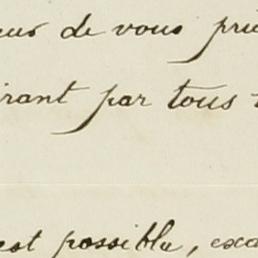 eur de vous pri
irant par tous
est possible, exa